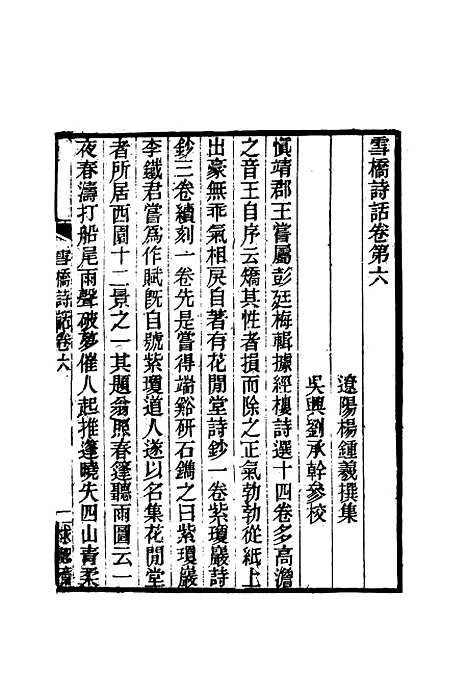 雪橋詩話卷第六
遼陽楊鍾羲撰集
吳興劉承幹參校
愼靖郡王嘗屬彭廷梅輯據經樓詩選十四卷多高澹
之音王自序云矯其性者損而除之正氣勃勃從紙上
出豪無乖氣相戾自著有花閒堂詩鈔一卷紫瓊巖詩
鈔三卷續刻一卷先是嘗得端谿研石鐫之曰紫瓊巖
李鐵君嘗爲作賦旣自號紫瓊道人遂以名集花閒堂
者所居西園十二景之一其題翁照春篷聽雨圖云一
夜春濤打船尾雨聲破夢催人起推篷曉失四山青柔
雪橋詩話卷六
一